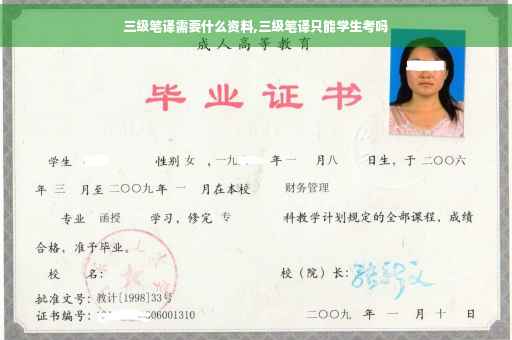 三级笔译需要什么资料,三级笔译只能学生考吗
成人高等教育
毕业证书
学生 性别 女 ,一九 年一 月八 日生，于二〇〇六
年 三 月至二〇〇九年 一 月在本校 财务管理
专业 函授 学习，修完 专 科教学计划规定的全部课程，成绩
合格，准予毕业。
校 名： 校（院）长：
批准文号：教计[1998]33号
证书编号： 06001310 二〇〇九 年 一 月 十 日